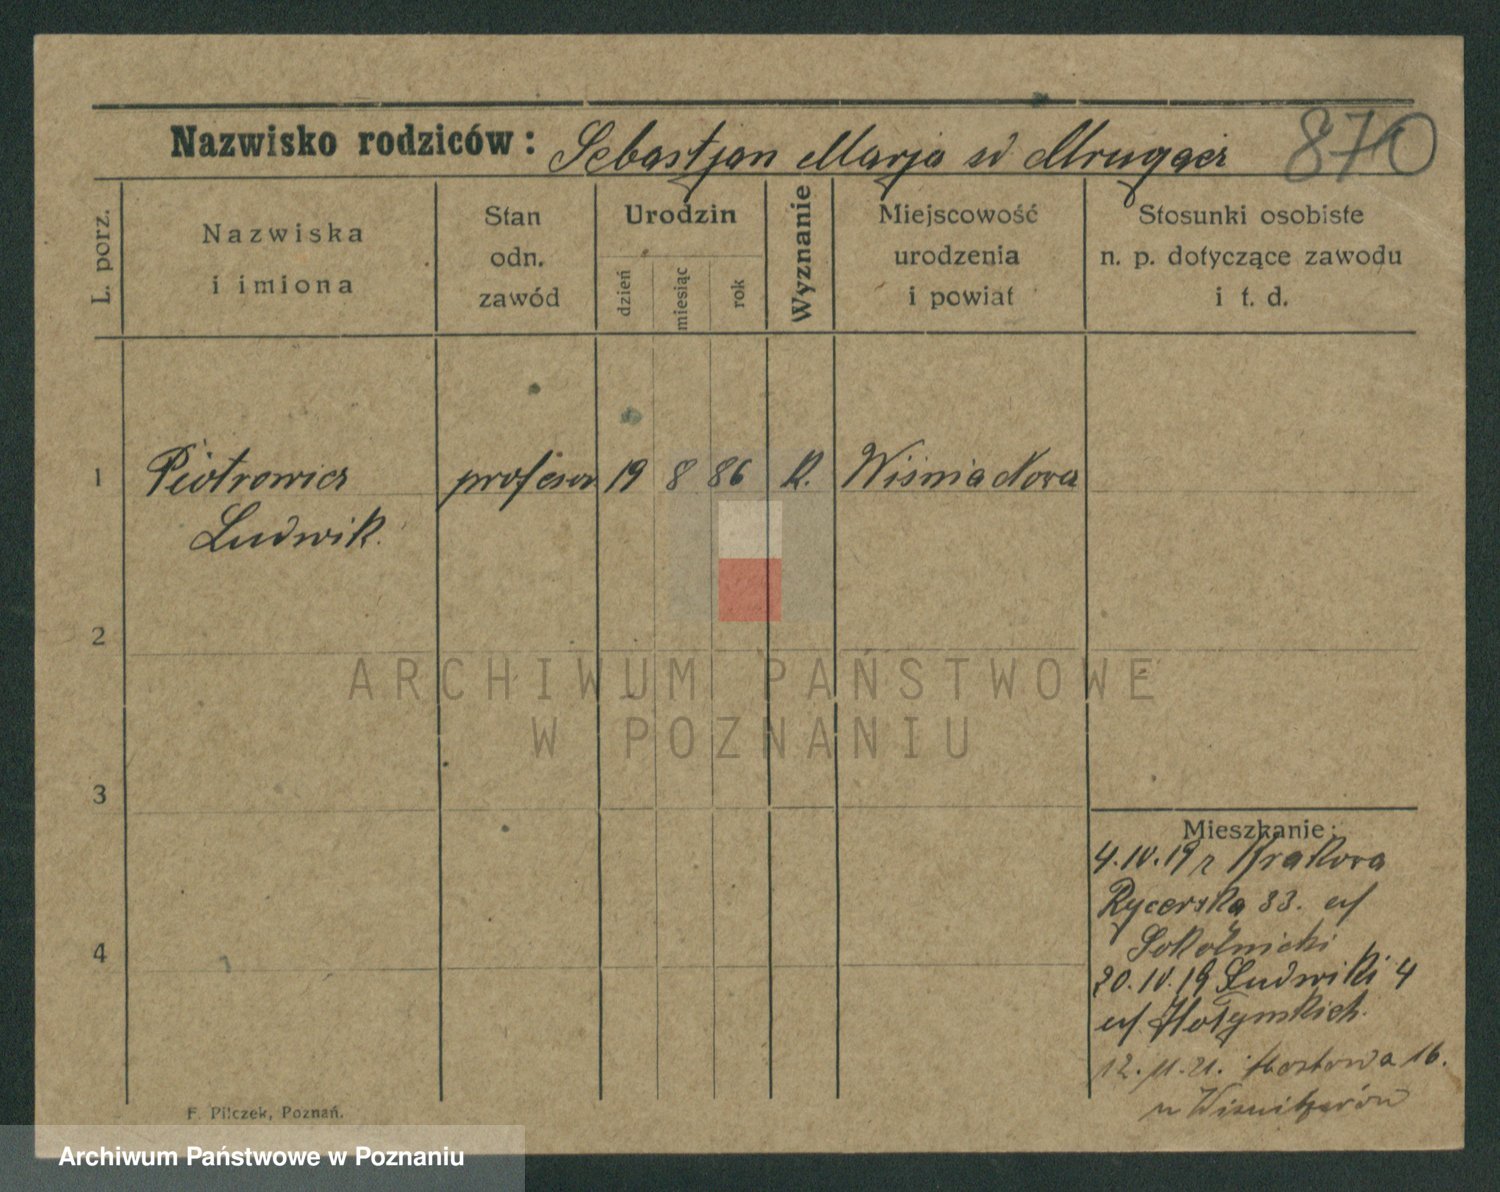 Nazwisko rodziców: Sebastjan Marja sd Mrugacz 870
L. porz.
Nazwiska
i imiona
Stan
odn.
zawód
Urodzin
dzień
miesiąc
rok
Wyznanie
Miejscowość
urodzenia
i powiat
Stosunki osobiste
n. p. dotyczące zawodu
i t. d.
1 Piotrowicz profesor 19 8 86 K. Wiśnia Nova
Ludwik.
2
3
4
Mieszkanie:
4.IV.19 z Krakova
Rycerska 33.
Sokolnicki
20.IV.19 Ludwiki 4
Hołynskich.
12.11.21. Mostowa 16.
u
F. Pilczek, Poznań.
ARCHIWUM PAŃSTWOWE
W POZNANIU
Archiwum Państwowe w Poznaniu